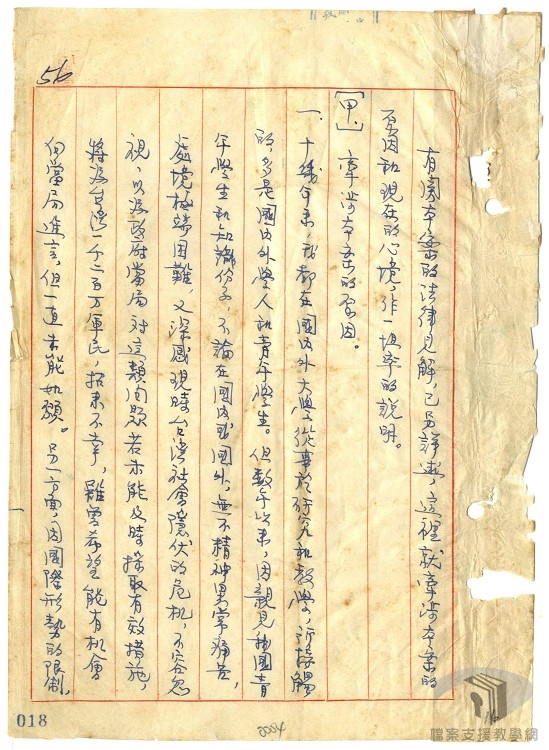 56
有關本案的法律見解，已另詳述，這裡就牽涉本案的
原因和現在的心境，作一坦率的說明。
[甲、] 牽涉本案的原因。
一、十幾年來，我都在國內外大學從事於研究和教學，所接觸
的，多是國內外學人和青年學生。但數年以來，因親見我國青
年學生和知識份子，不論在國內或國外，無不精神異常痛苦，
處境極端困難，又深感現時台灣社會隱伏的危机，不容忽
視，以及政府當局對這類問題若未能及時採取有效措施，
將被台灣一千二百万軍民，招來不幸，雖曾希望能有机會
向當局進言，但一直未能如願。另一方面，因國際形勢的限制，
018
檔案支援教學網